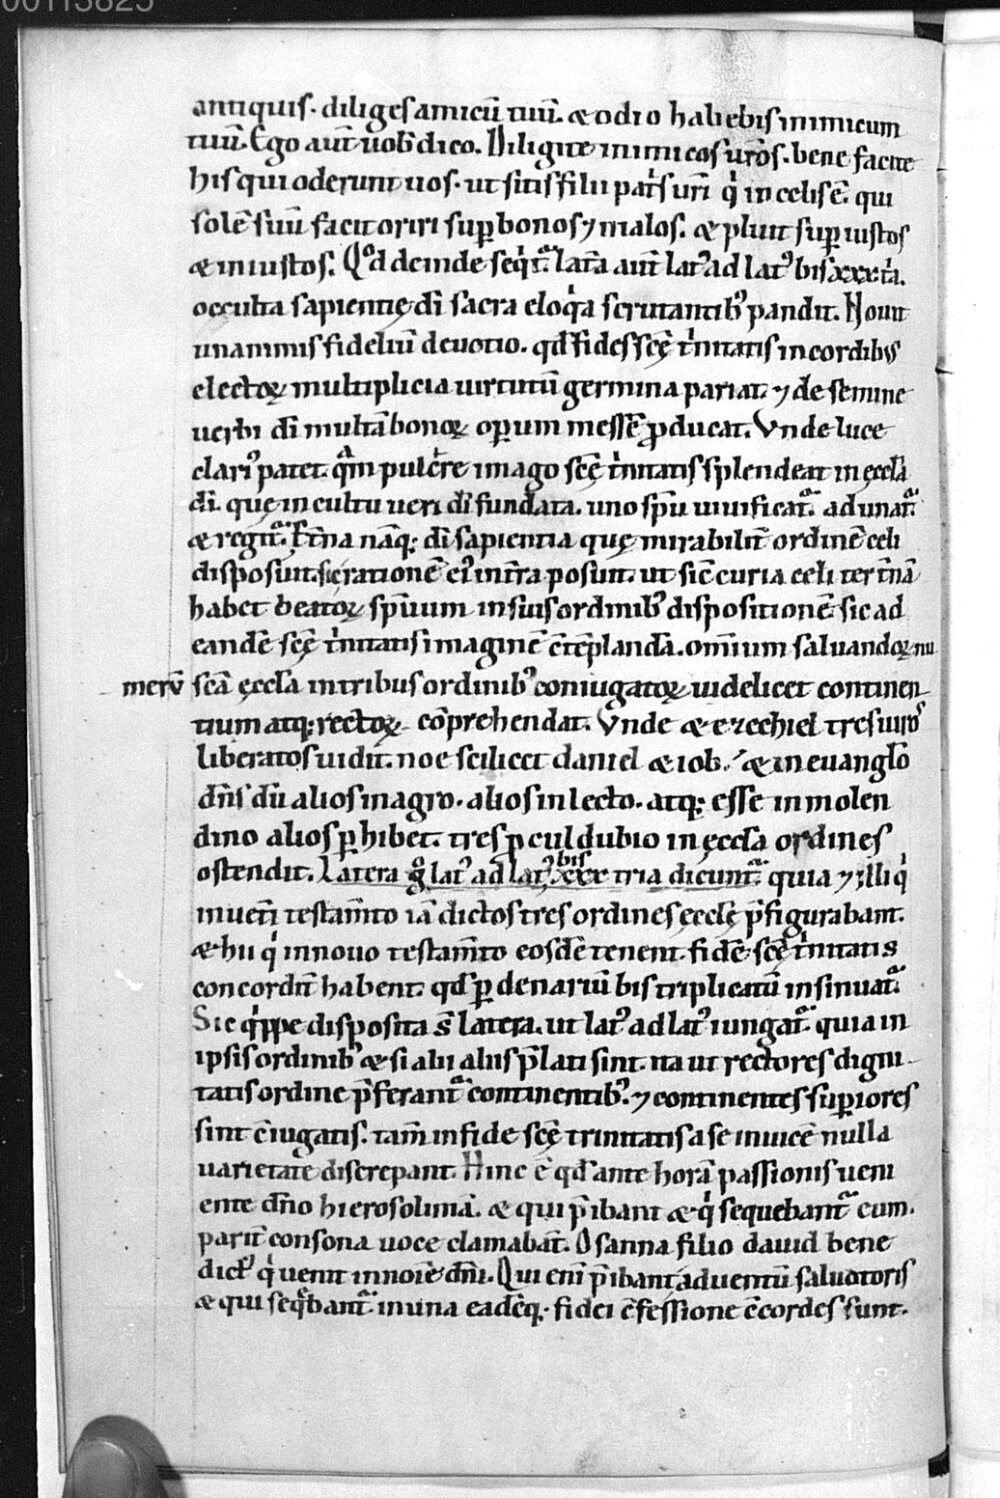 00113825
antiquis. diliges amicū tuū. & odio habebis inimicum
tuū. Ego aut̄ uob̄ dico. Diligite inimicos ur̄os. bene facite
his qui oderunt uos. ut sitis filii pat̄s ur̄i qͥ in celis ē. qui
solē suū facit oriri suꝑ bonos ⁊ malos. & pluit suꝑ iustos
& iniustos. Qd̊ deinde seqͥt᷑. lat̄a aut̄ lat᷒ ad lat᷒ bis xxx.tͥa.
occulta sapientię dī sacra eloqͥa scrutantib᷒ pandit. Nouit
unanimis fideliū deuotio. qd̄ fides scę̄ tͥnitatis in cordibus
electoꝝ multiplicia uirtutū germina pariat. ⁊ de semine
uerbi dī multā bonoꝝ oꝑum messē ꝓducat. Vnde luce
clari᷒ patet. qͣm pulcre imago scę̄ tͥnitatis splendeat in ęccl̄a
dī. quę in cultu ueri dī fundata. uno sp̄u uiuificat᷑. adunat᷑
& regit᷑. Et̄na nāq; dī sapientia quę mirabilit̄ ordinē celi
disposuit. sic rationē ei᷒ in t̄ra posuit. ut sic̄ curia celi ter tͥnā
habet beatoꝝ sp̄uum in suis ordinib᷒ dispositionē. sic ad
eandē scę̄ tͥnitatis imaginē c̄tēplandā. om̄ium saluandoꝝ nu
merū scā ęccl̄a in tribus ordinib᷒ coniugatoꝝ uidelicet continen
tium atq; rectoꝝ cōprehendat. Vnde & ezechiel tres uiros
liberatos uidit. noe scilicet daniel & iob. & in euangl̄o
dn̄s dū alios in agro. alios in lecto. atq; esse in molen
dino alios ꝑhibet. tres ꝓcul dubio in ęccl̄a ordines
ostendit. Latera gͦ lat᷒ ad lat᷒ bis xxx tria dicunt᷑. quia ⁊ illi qͥ
in uet̄i testam̄to iā dictos tres ordines ęccl̄ę p̄figurabant.
& hii qͥ in nouo testam̄to eosdē tenent. fidē scę̄ tͥnitatis
concordit̄ habent. qd̄ ꝑ denariū bis triplicatū insinuat᷑.
Sic qͥppe disposita s̄ latera. ut lat᷒ ad lat᷒ iungat᷑. quia in
ipsis ordinib᷒ & si alii aliis p̄lati sint. ita ut rectores digni
tatis ordine p̄ferant᷑ continentib᷒. ⁊ continentes suꝑiores
sint c̄iugatis. tam̄ in fide scę̄ trinitatis a se inuicē nulla
uarietate discrepant. Hinc ē qd̄ ante horā passionis ueni
ente dn̄o hierosolimā. & qui p̄ibant & qͥ sequebant᷑ eum.
parit̄ consona uoce clamabāt. Osanna filio dauid bene
dict᷒ qͥ uenit in noīe dn̄i. Qui eni p̄ibant aduentū saluatoris
& qui seq̄bant᷑. in una eadēq; fidei c̄fessione c̄cordes sunt.